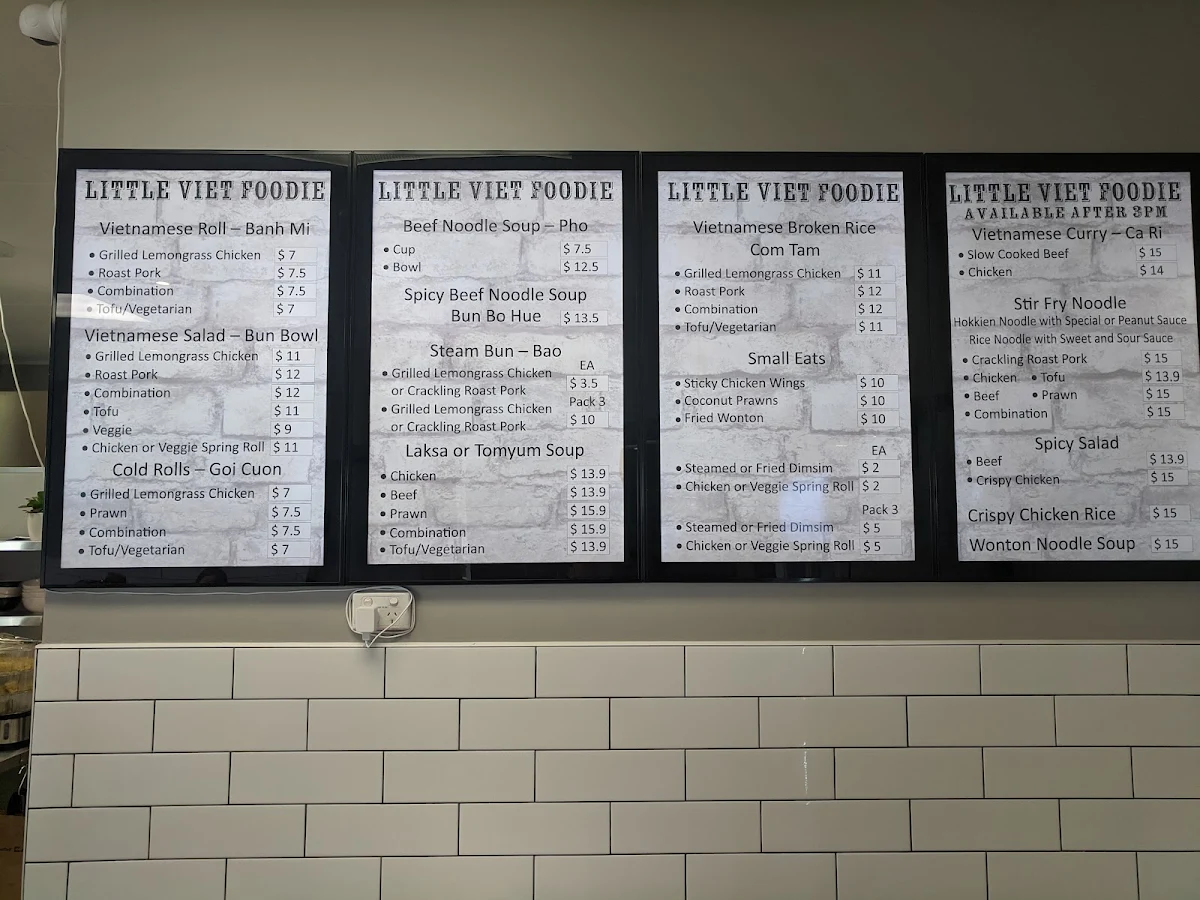 LITTLE VIET FOODIE
Vietnamese Roll – Banh Mi
• Grilled Lemongrass Chicken $ 7
• Roast Pork $ 7.5
• Combination $ 7.5
• Tofu/Vegetarian $ 7
Vietnamese Salad – Bun Bowl
• Grilled Lemongrass Chicken $ 11
• Roast Pork $ 12
• Combination $ 12
• Tofu $ 11
• Veggie $ 9
• Chicken or Veggie Spring Roll $ 11
Cold Rolls – Goi Cuon
• Grilled Lemongrass Chicken $ 7
• Prawn $ 7.5
• Combination $ 7.5
• Tofu/Vegetarian $ 7
LITTLE VIET FOODIE
Beef Noodle Soup – Pho
• Cup $ 7.5
• Bowl $ 12.5
Spicy Beef Noodle Soup
Bun Bo Hue $ 13.5
Steam Bun – Bao
EA
• Grilled Lemongrass Chicken
or Crackling Roast Pork $ 3.5
Pack 3
• Grilled Lemongrass Chicken
or Crackling Roast Pork $ 10
Laksa or Tomyum Soup
• Chicken $ 13.9
• Beef $ 13.9
• Prawn $ 15.9
• Combination $ 15.9
• Tofu/Vegetarian $ 13.9
LITTLE VIET FOODIE
Vietnamese Broken Rice
Com Tam
• Grilled Lemongrass Chicken $ 11
• Roast Pork $ 12
• Combination $ 12
• Tofu/Vegetarian $ 11
Small Eats
• Sticky Chicken Wings $ 10
• Coconut Prawns $ 10
• Fried Wonton $ 10
EA
• Steamed or Fried Dimsim $ 2
• Chicken or Veggie Spring Roll $ 2
Pack 3
• Steamed or Fried Dimsim $ 5
• Chicken or Veggie Spring Roll $ 5
LITTLE VIET FOODIE
AVAILABLE AFTER 3PM
Vietnamese Curry – Ca Ri
• Slow Cooked Beef $ 15
• Chicken $ 14
Stir Fry Noodle
Hokkien Noodle with Special or Peanut Sauce
Rice Noodle with Sweet and Sour Sauce
• Crackling Roast Pork $ 15
• Chicken • Tofu $ 13.9
• Beef • Prawn $ 15
• Combination $ 15
Spicy Salad
• Beef $ 13.9
• Crispy Chicken $ 15
Crispy Chicken Rice $ 15
Wonton Noodle Soup $ 15